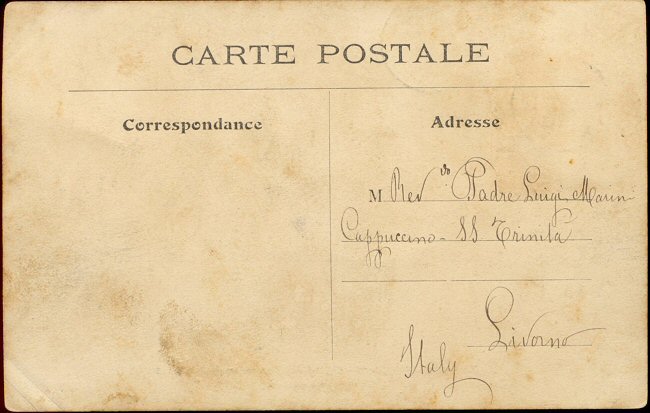 CARTE POSTALE
Correspondance
Adresse
M Revdo Padre Luigi Marini
Cappuccino - SS Trinità
Livorno
Italy